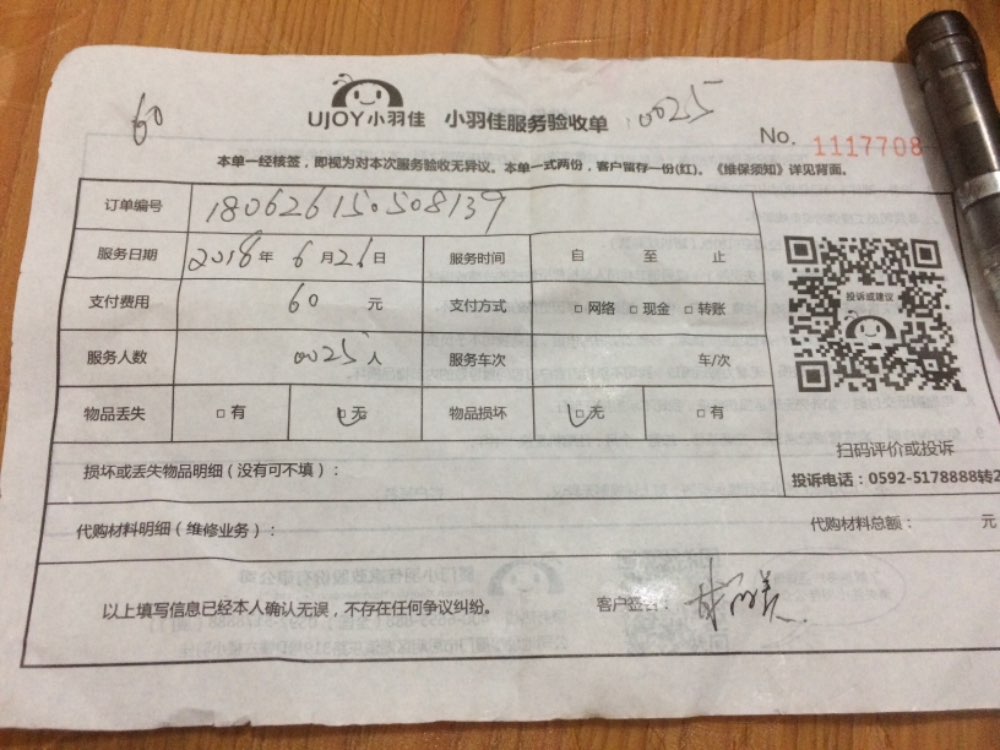 60
UJOY小羽佳 小羽佳服务验收单 0025
No. 1117708
本单一经核签，即视为对本次服务验收无异议。本单一式两份，客户留存一份(红)。《维保须知》详见背面。
订单编号 180626150508139
服务日期 2018年 6月26日 服务时间 自 至 止
支付费用 60 元 支付方式 □网络 □现金 □转账
投诉或建议
服务人数 0025人 服务车次 车/次
物品丢失 □有 □无 物品损坏 □无 □有
扫码评价或投诉
损坏或丢失物品明细（没有可不填）：
投诉电话：0592-5178888转2
代购材料明细（维修业务）： 代购材料总额： 元
以上填写信息已经本人确认无误，不存在任何争议纠纷。 客户签名：